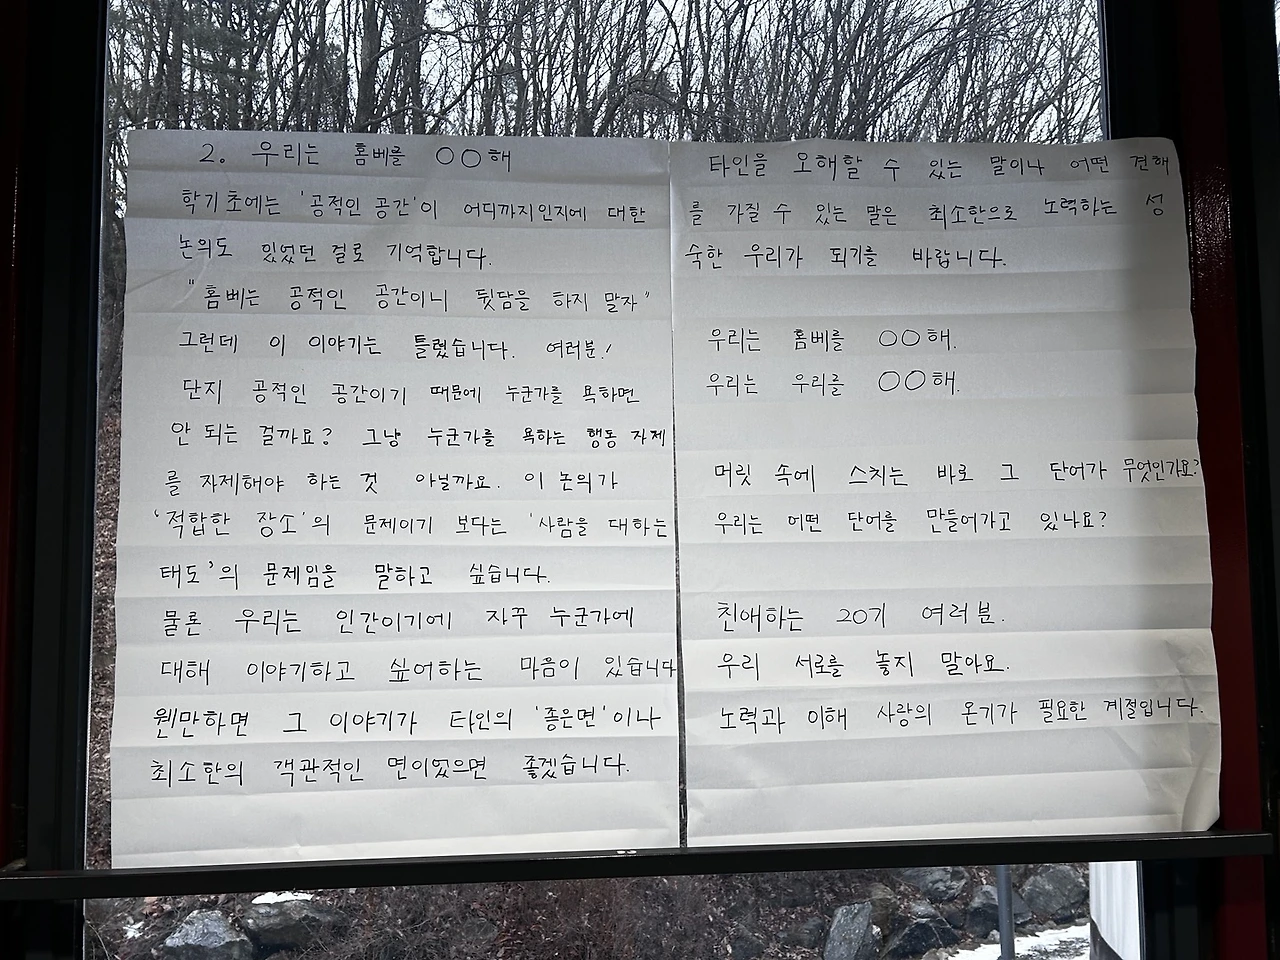 2. 우리는 홈베를 ○○해
학기초에는 '공적인 공간'이 어디까지인지에 대한
논의도 있었던 걸로 기억합니다.
"홈베는 공적인 공간이니 뒷담을 하지 말자"
그런데 이 이야기는 틀렸습니다. 여러분!
단지 공적인 공간이기 때문에 누군가를 욕하면
안 되는 걸까요? 그냥 누군가를 욕하는 행동 자체
를 자제해야 하는 것 아닐까요. 이 논의가
'적합한 장소'의 문제이기 보다는 '사람을 대하는
태도'의 문제임을 말하고 싶습니다.
물론 우리는 인간이기에 자꾸 누군가에
대해 이야기하고 싶어하는 마음이 있습니다
웬만하면 그 이야기가 타인의 '좋은면'이나
최소한의 객관적인 면이었으면 좋겠습니다.
타인을 오해할 수 있는 말이나 어떤 견해
를 가질 수 있는 말은 최소한으로 노력하는 성
숙한 우리가 되기를 바랍니다.
우리는 홈베를 ○○해.
우리는 우리를 ○○해.
머릿 속에 스치는 바로 그 단어가 무엇인가요?
우리는 어떤 단어를 만들어가고 있나요?
친애하는 20기 여러분.
우리 서로를 놓지 말아요.
노력과 이해 사랑의 온기가 필요한 계절입니다.